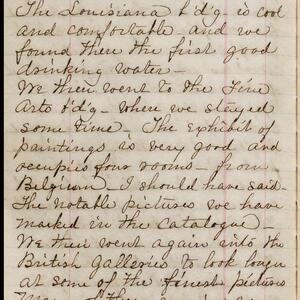 The Louisiana b'd'g is cool
and comfortable - and we
found there the first good
drinking water -
We then went to the Fine
Arts b'd'g - where we stayed
some time. The exhibit of
paintings is very good and
occupies four rooms - from
Belgium I should have said -
The notable pictures we have
marked in the catalogue -
We then went again into the
British galleries to look longer
at some of the finest pictures